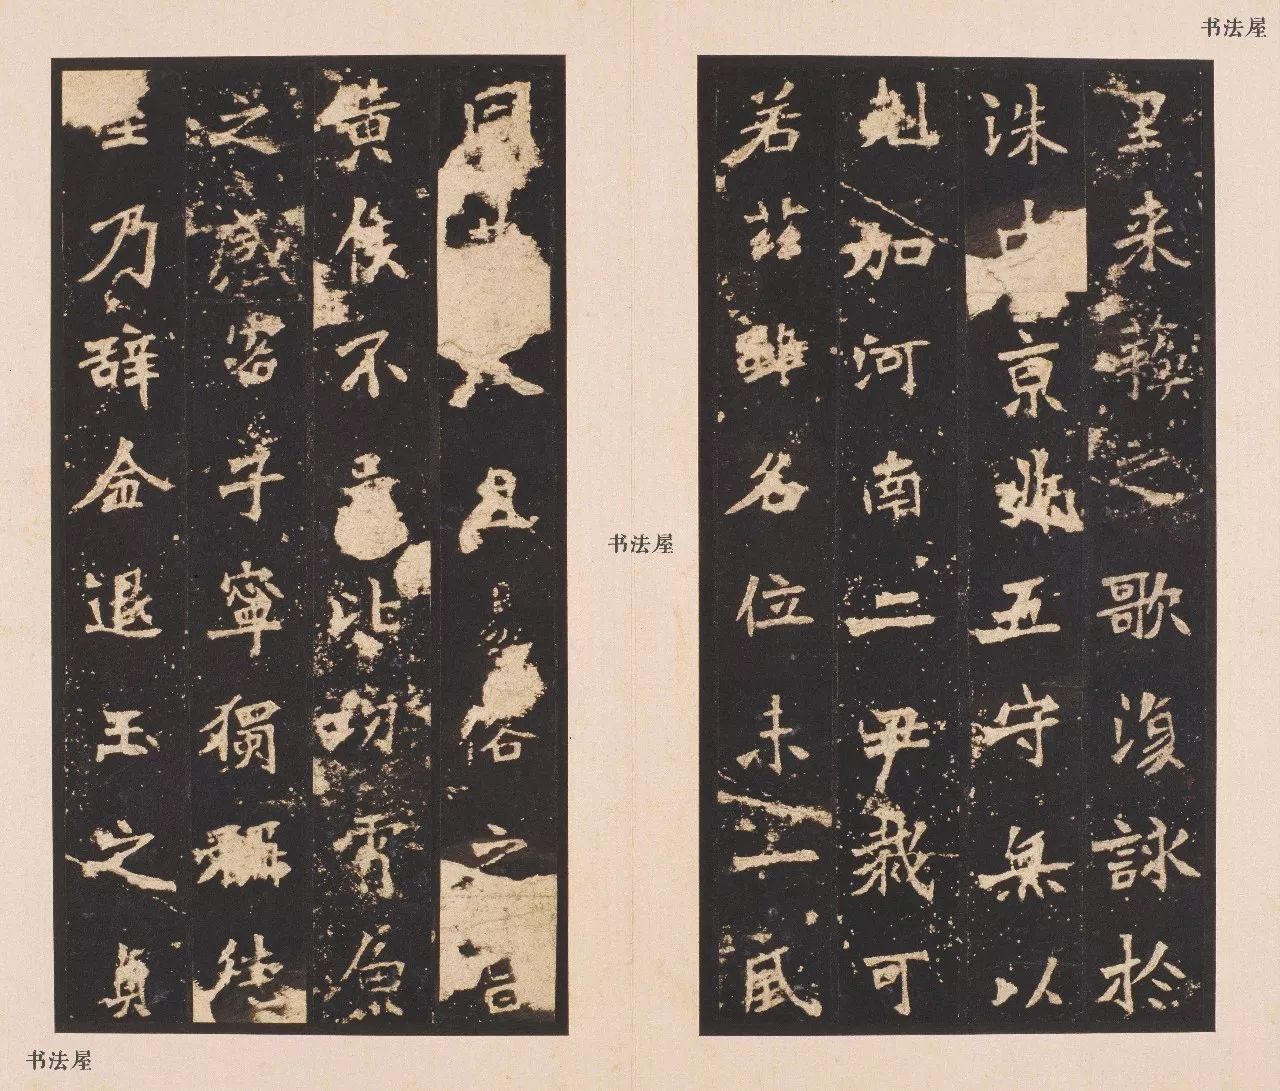 书法屋
里来蘓之歌復詠於
洙中京兆五守無以
尅加河南二尹裁可
若茲雖名位未一風
书法屋
同且谷之
黄侯不比
之感客子寧獨稱
乃辭金退玉之貞
书法屋